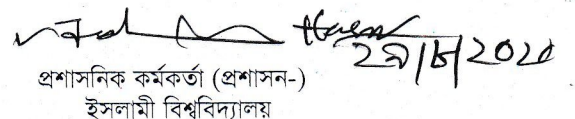 ২৯/৮/2020
প্রশাসনিক কর্মকর্তা (প্রশাসন-)
ইসলামী বিশ্ববিদ্যালয়